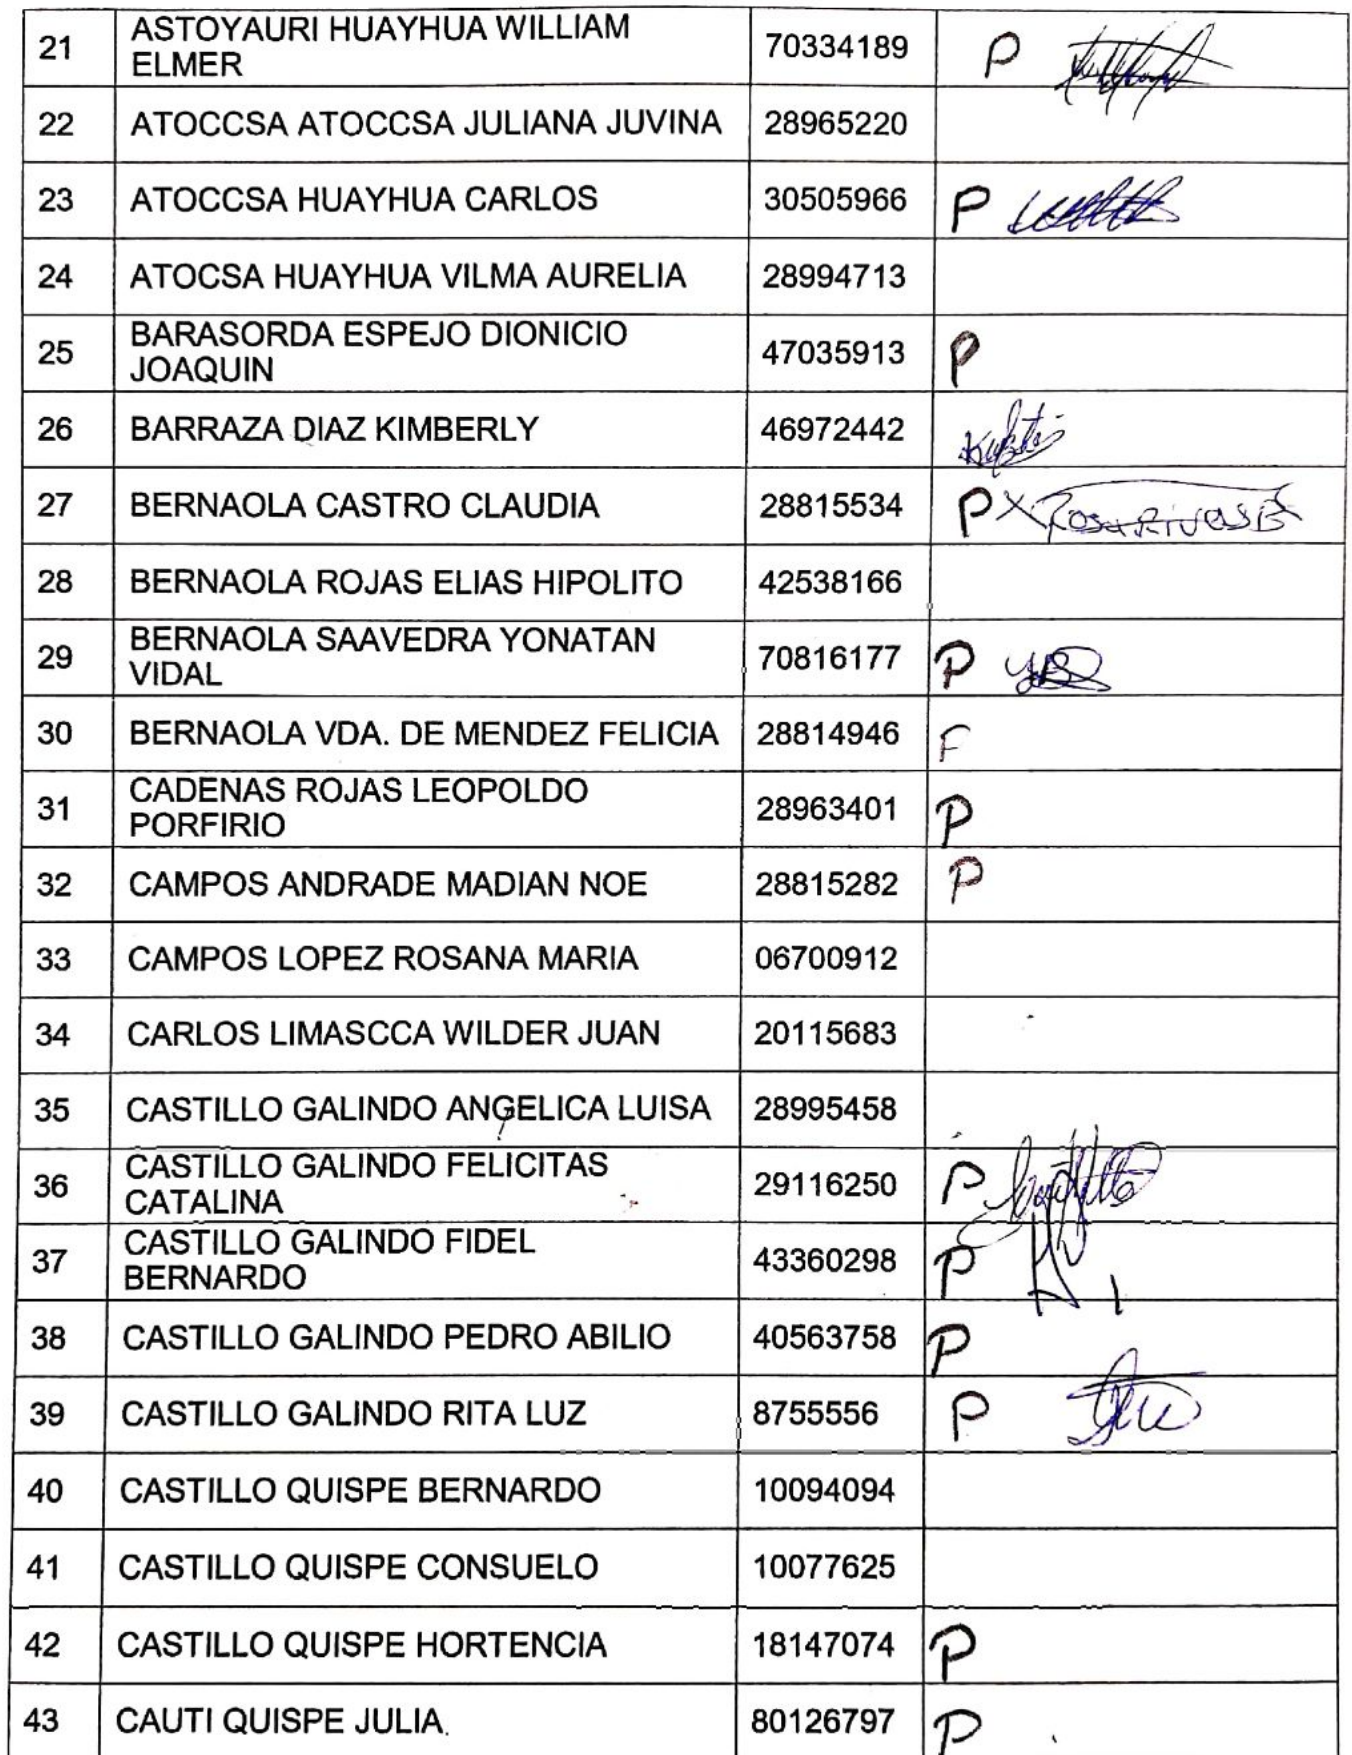 21 ASTOYAURI HUAYHUA WILLIAM ELMER 70334189 P
22 ATOCCSA ATOCCSA JULIANA JUVINA 28965220
23 ATOCCSA HUAYHUA CARLOS 30505966 P
24 ATOCSA HUAYHUA VILMA AURELIA 28994713
25 BARASORDA ESPEJO DIONICIO JOAQUIN 47035913 P
26 BARRAZA DIAZ KIMBERLY 46972442
27 BERNAOLA CASTRO CLAUDIA 28815534 P X Rosa Rivas B
28 BERNAOLA ROJAS ELIAS HIPOLITO 42538166
29 BERNAOLA SAAVEDRA YONATAN VIDAL 70816177 P
30 BERNAOLA VDA. DE MENDEZ FELICIA 28814946 F
31 CADENAS ROJAS LEOPOLDO PORFIRIO 28963401 P
32 CAMPOS ANDRADE MADIAN NOE 28815282 P
33 CAMPOS LOPEZ ROSANA MARIA 06700912
34 CARLOS LIMASCCA WILDER JUAN 20115683
35 CASTILLO GALINDO ANGELICA LUISA 28995458
36 CASTILLO GALINDO FELICITAS CATALINA 29116250 P
37 CASTILLO GALINDO FIDEL BERNARDO 43360298 P
38 CASTILLO GALINDO PEDRO ABILIO 40563758 P
39 CASTILLO GALINDO RITA LUZ 8755556 P
40 CASTILLO QUISPE BERNARDO 10094094
41 CASTILLO QUISPE CONSUELO 10077625
42 CASTILLO QUISPE HORTENCIA 18147074 P
43 CAUTI QUISPE JULIA 80126797 P